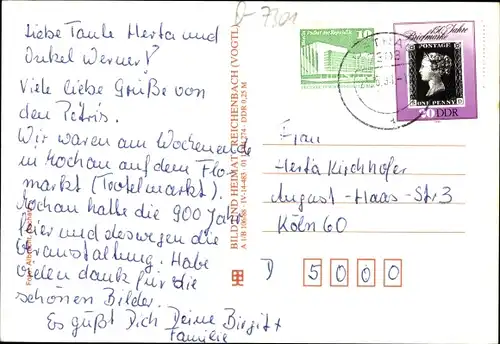 D-7301
Liebe Tante Herta und
Onkel Werner!
Viele liebe Grüße von
den Petris.
Wir waren am Wochenende
in Mochau auf dem Floh-
markt (Trödelmarkt).
Mochau hatte die 900 Jahr
feier und deswegen die
Veranstaltung. Habe
vielen dank für die
schönen Bilder.
Es güßt Dich Deine Birgit +
Familie
BILD UND HEIMAT REICHENBACH (VOGTL)
A 1/B 106/88 IV-14-483 01 DDR 0,25 M
Palast der Republik
10
150 Jahre
Briefmarke
POSTAGE
ONE PENNY
20 DDR
Frau
Herta Kirchhofer
August-Haas-Str 3
Köln 60
D 5000